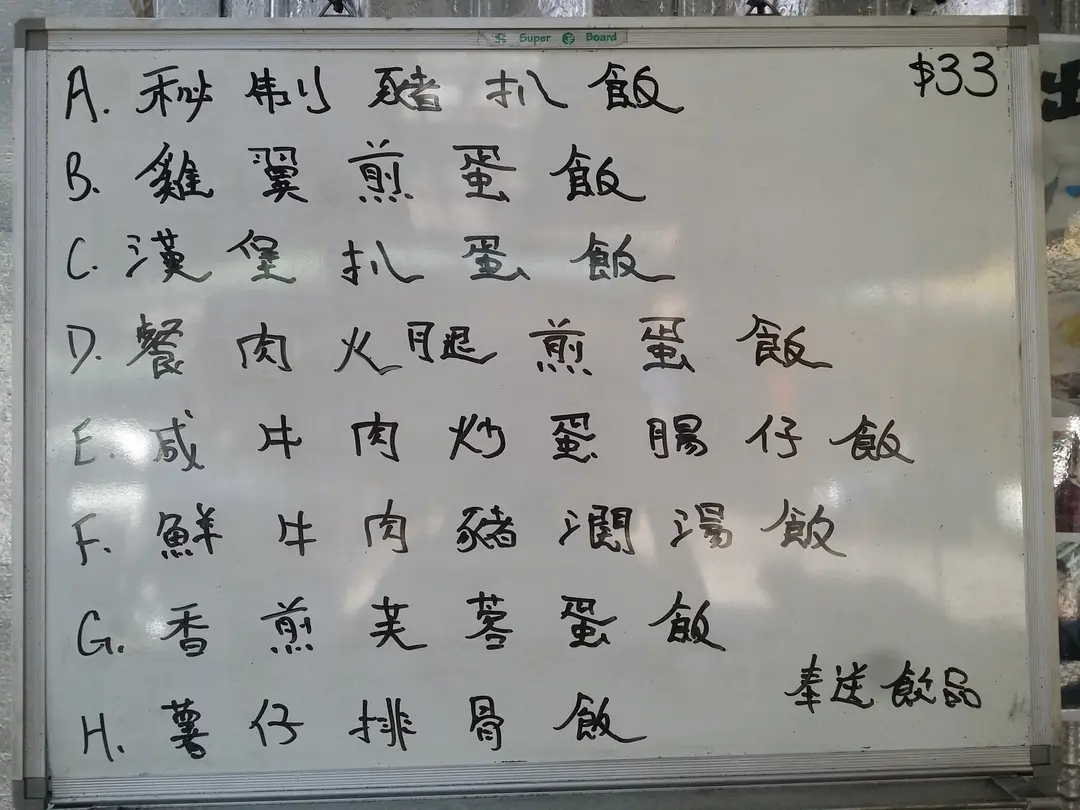 Super Board
A. 秘制豬扒飯 $33
B. 雞翼煎蛋飯
C. 漢堡扒蛋飯
D. 餐肉火腿煎蛋飯
E. 咸牛肉炒蛋腸仔飯
F. 鮮牛肉豬潤湯飯
G. 香煎芙蓉蛋飯
奉送飲品
H. 薯仔排骨飯